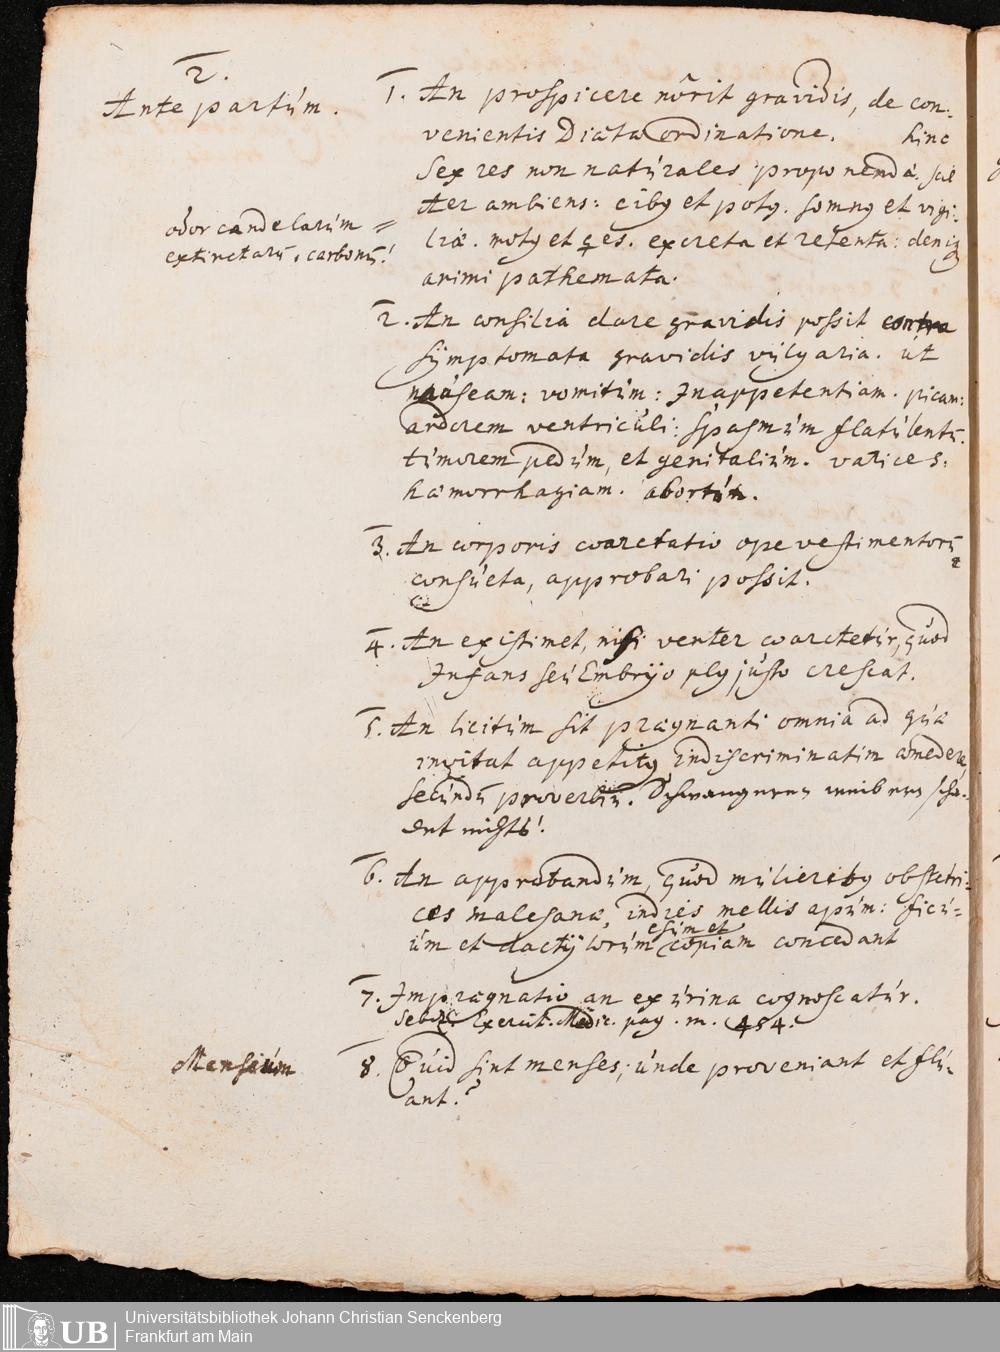 2.
Ante partúm.
1. An prospicere nôrit gravidis, de con:
venientis Diæta ordinatione. hinc
Sex res non natúrales proponendæ. scil
Aer ambiens: cibꝰ et potꝰ. somnꝰ et vigi:
liæ. motꝰ et qes. excreta et retenta: deniqꝫ
animi pathemata.
odor candelarúm =
extinctarū, carbonū!
2. An consilia dare gravidis possit contra
sÿmptomata gravidis vúlgaria. út
náúseam: vomitúm: Inappetentiam. picam:
ardorem ventricúli: spasmúm flatúlentū.
túmorem pedúm, et genitaliúm. varices.
hæmorrhagiam. abortúm.
3. An corporis coarctatio ope vestimentorū
consúeta, approbari possit.
4. An existimet, nisi venter coarctetúr, qúod
Infans seú Embrÿo plꝰ jústo crescat.
5. An licitúm sit prægnanti omnia ad qúæ
invitat appetitꝰ indiscriminatim comedere,
secúndū proverbiū. Schwangeren weibern scha-
det nichts!
6. An approbandúm, qúod múlieribꝰ obstetri-
ces malesanæ, indies mellis apúm: ficú=
úm et dactÿlorúm esúm et copiam concedant
7. Imprægnatio an ex úrina cognoscatúr.
Exercit. Medic. pag. m. 454.
Mensiúm
8. Qúid sint menses; únde proveniant et flú-
ant.?
Universitätsbibliothek Johann Christian Senckenberg
Frankfurt am Main
UB